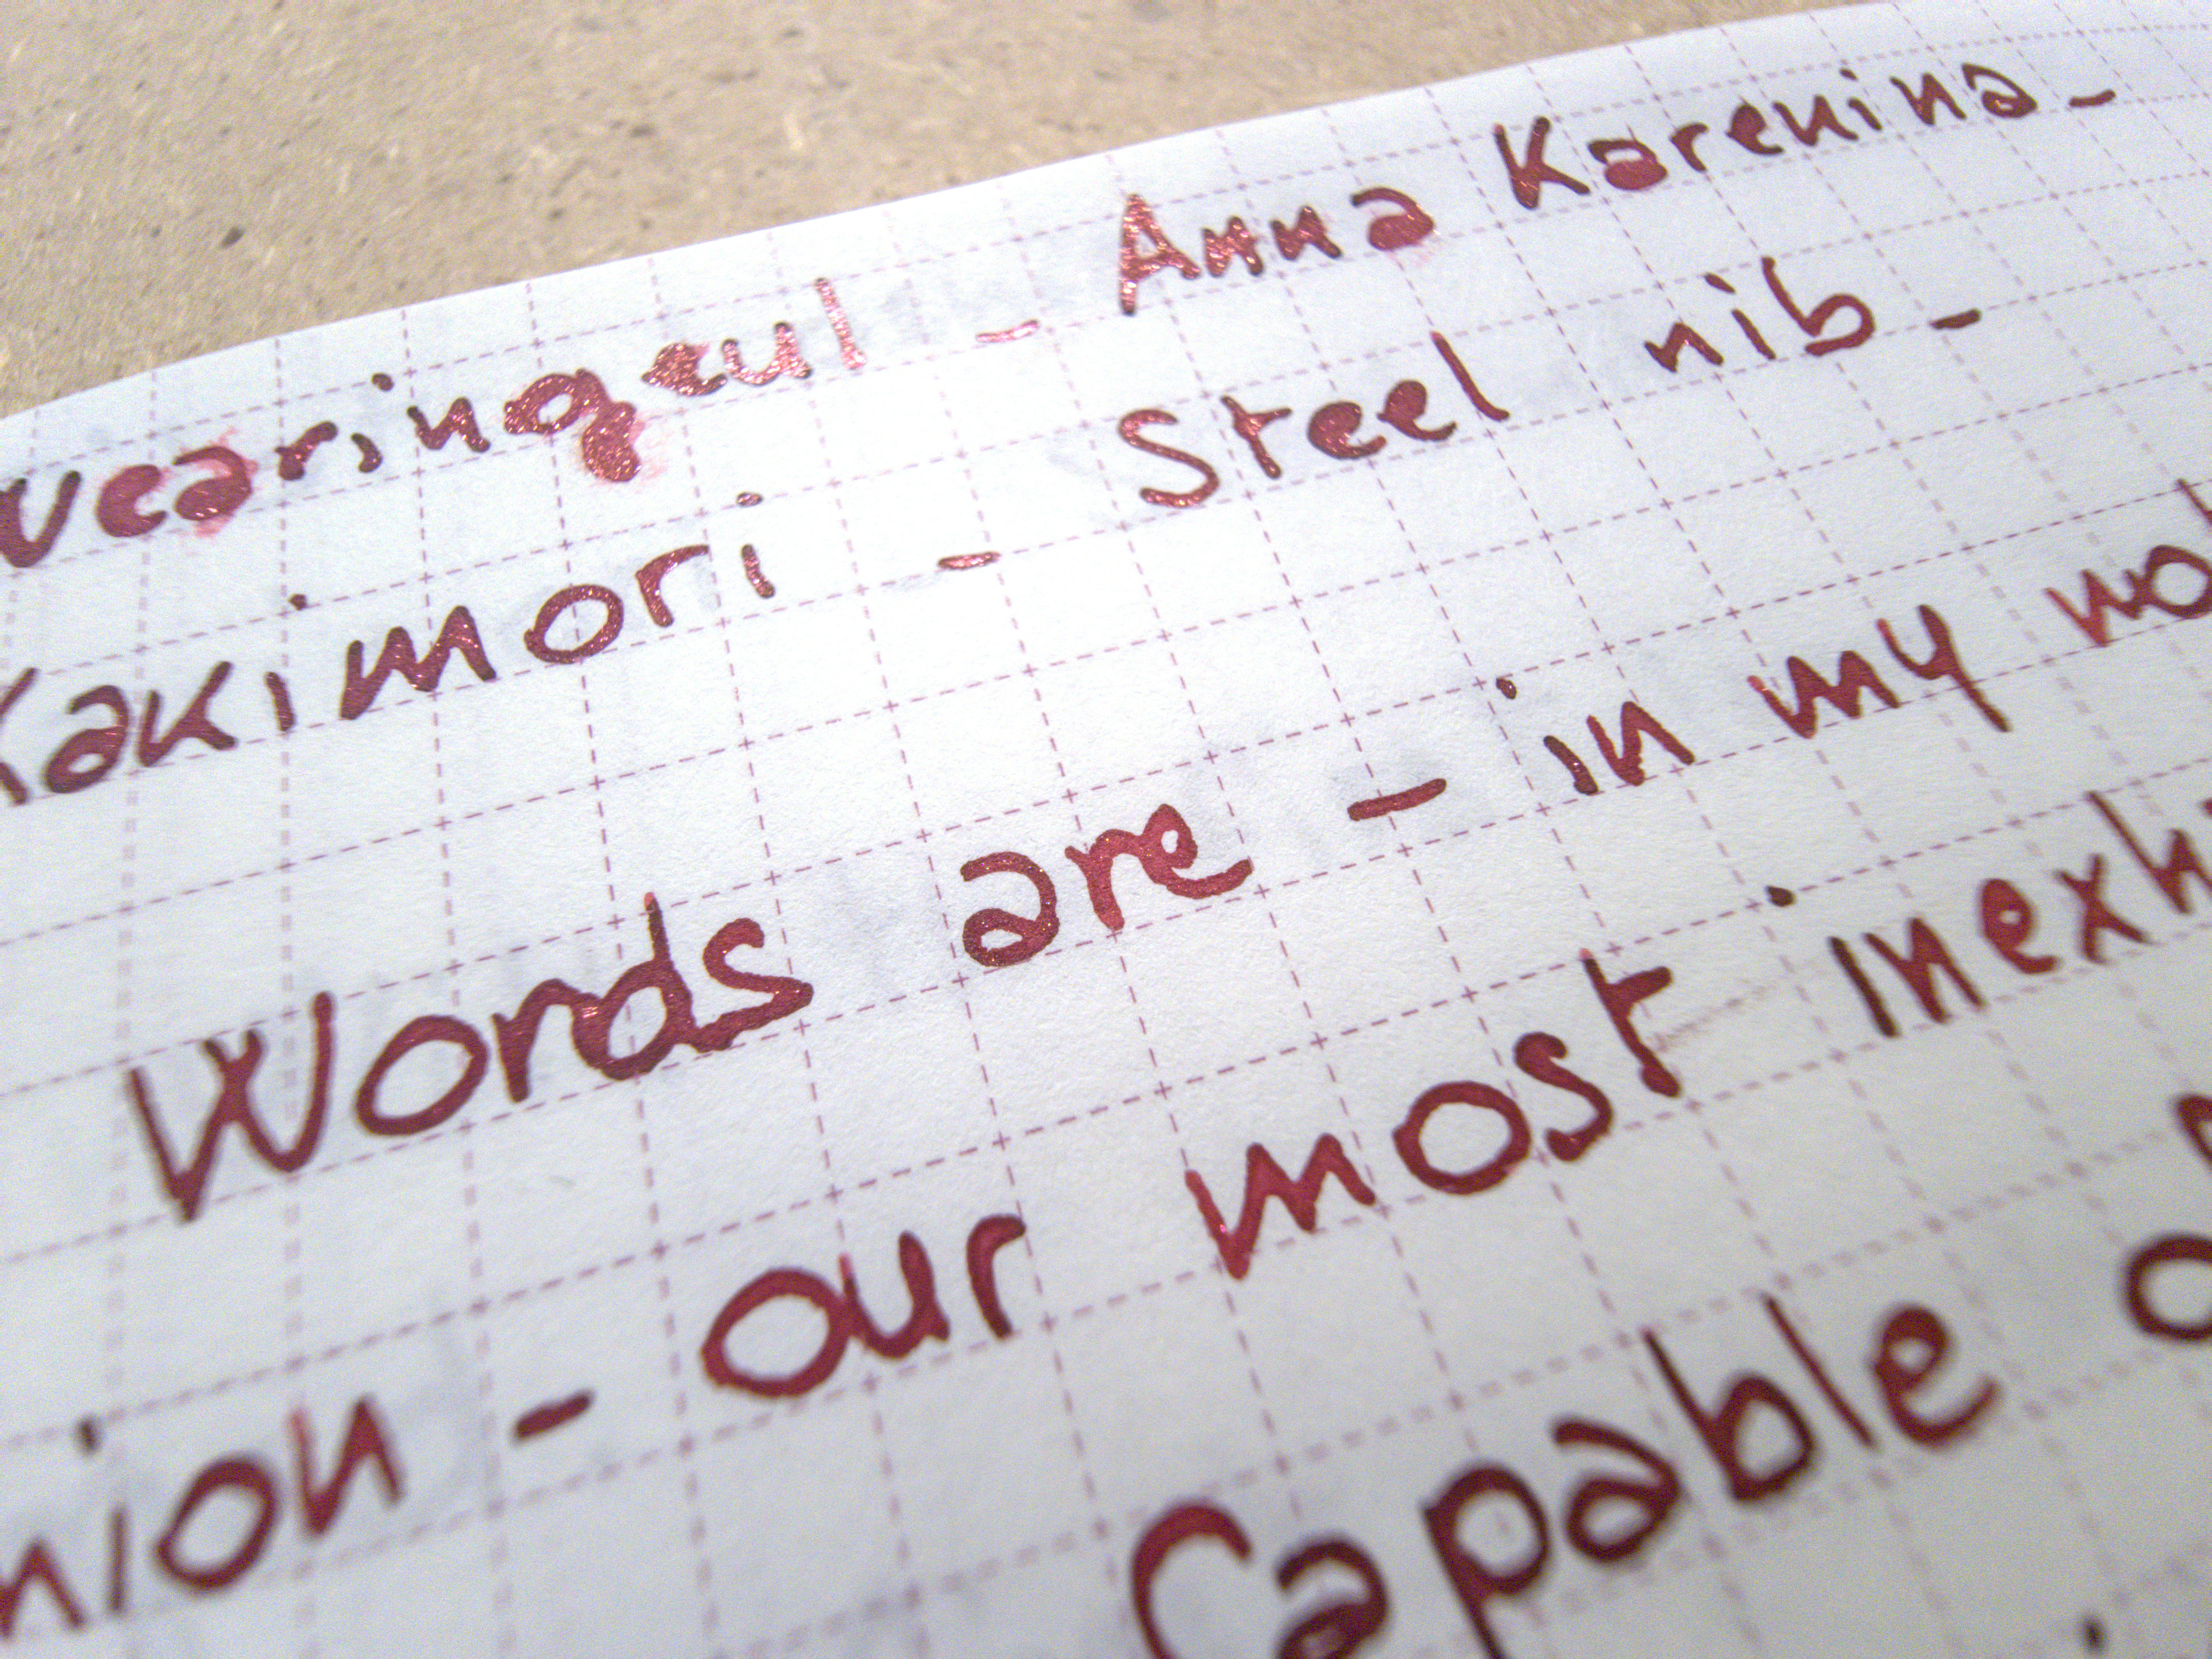 wearingeul - Anna Karenina -
Kakimori - Steel nib -
Words are - in my
nion - our most inexh
Capable o